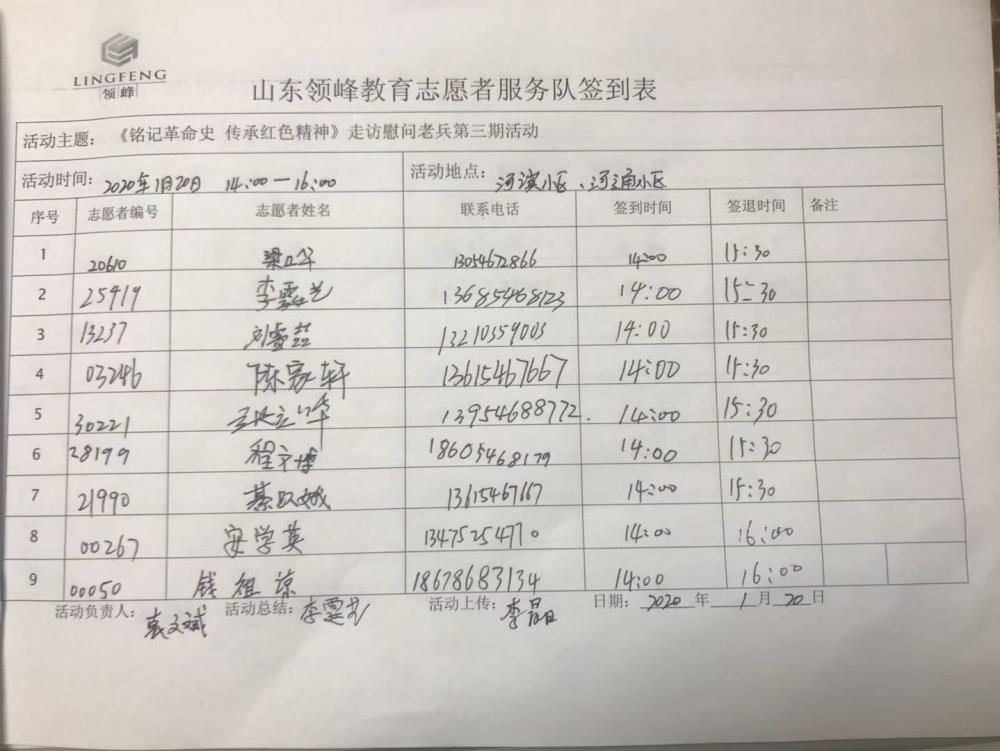 LINGFENG
领峰
山东领峰教育志愿者服务队签到表
活动主题: 《铭记革命史 传承红色精神》走访慰问老兵第三期活动
活动时间: 2020年1月20日 14:00—16:00 活动地点: 河滨小区、河通小区
序号 志愿者编号 志愿者姓名 联系电话 签到时间 签退时间 备注
1 20610 13054672866 14:00 15:30
2 25919 李霞艺 13685468123 14:00 15:30
3 13237 13210359003 14:00 15:30
4 03246 陈家轩 13615467667 14:00 15:30
5 30221 13954688772. 14:00 15:30
6 28199 程文博 18605468179 14:00 15:30
7 21990 13615467667 14:00 15:30
8 00267 宋学英 13475254770 14:00 16:00
9 00050 钱祖谅 18678683134 14:00 16:00
活动负责人: 袁文斌 活动总结: 李霞艺 活动上传: 李晶 日期: 2020 年 1 月 20 日